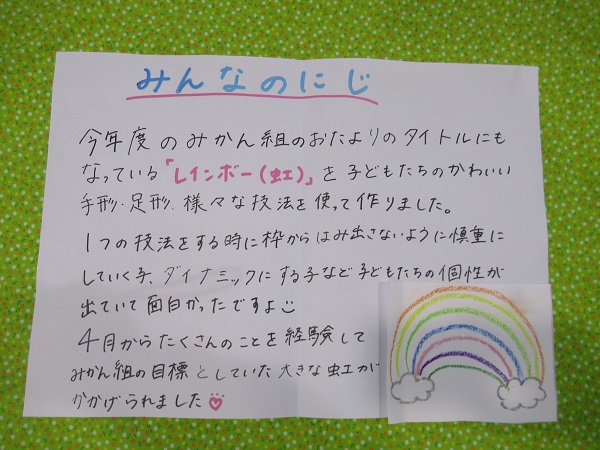 みんなのにじ
今年度のみかん組のおたよりのタイトルにも
なっている「レインボー(虹)」を子どもたちのかわいい
手形・足形、様々な技法を使って作りました。
1つの技法をする時に枠からはみ出さないように慎重に
していく子、ダイナミックにする子など子どもたちの個性が
出ていて面白かったですよ
4月からたくさんのことを経験して
みかん組の目標としていた大きな虹が
かかげられました♡